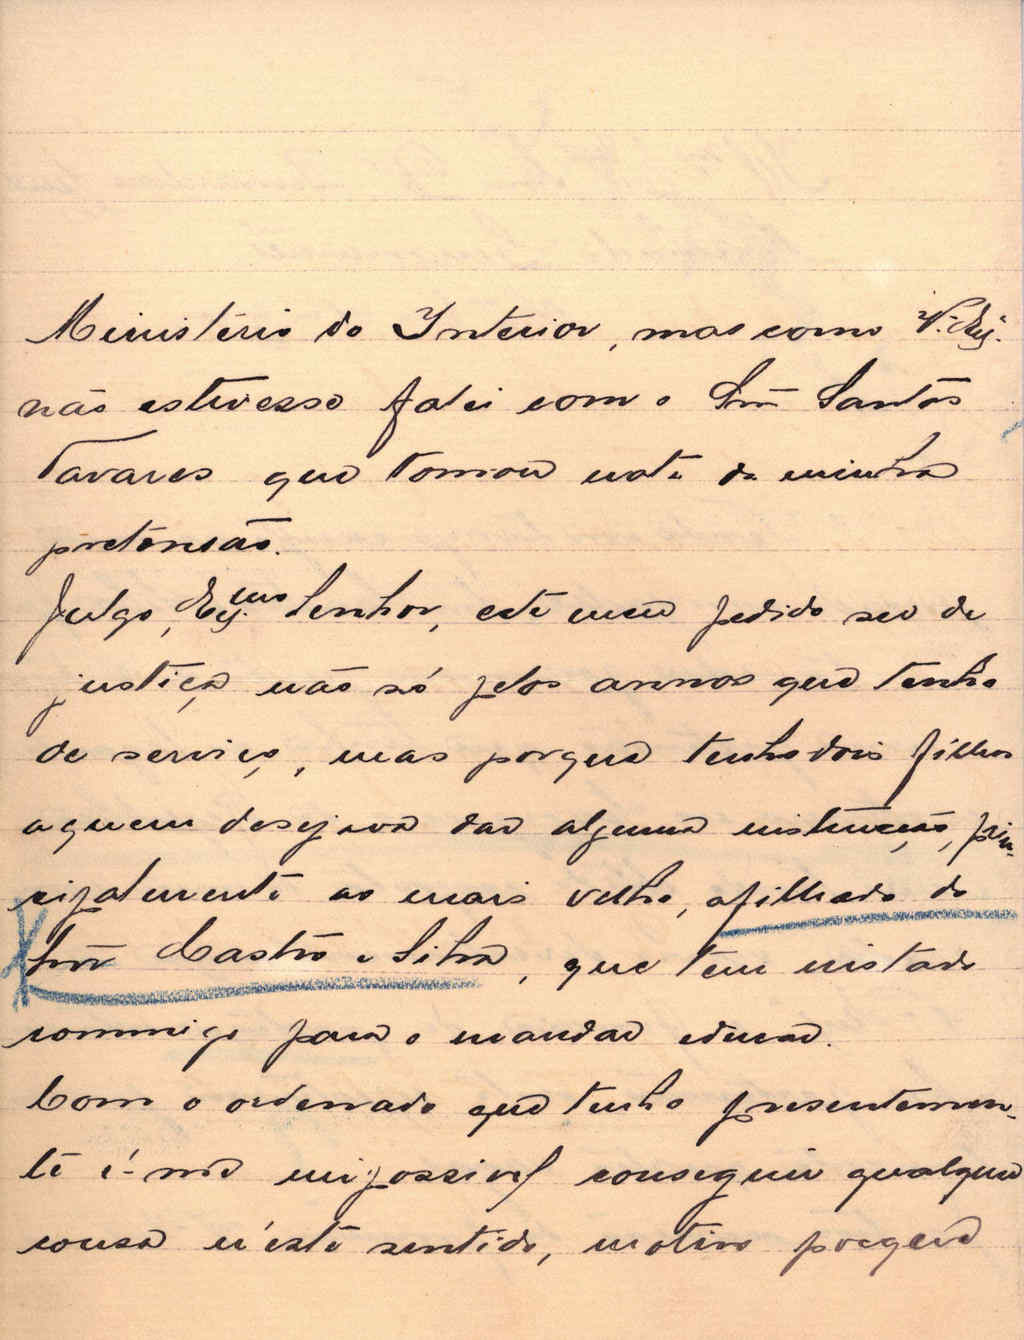 Ministério do Interior, mas como V. Exª.
não estivesse falei com o Snr. Santos
Tavares que tomou nota da minha
pretensão.
Julgo, Exmo Senhor, este meu pedido ser de
justiça não só pelos annos que tenho
de serviço, mas porque tenho dois filhos
a quem desejava dar alguma instrucção, prin-
cipalmente ao mais velho, afilhado do
Snr. Castro e Silva, que tem instado
commigo para o mandar educar.
Com o ordenado que tenho presentemen-
te é-me impossivel conseguir qualquer
cousa n'este sentido, motivo porque